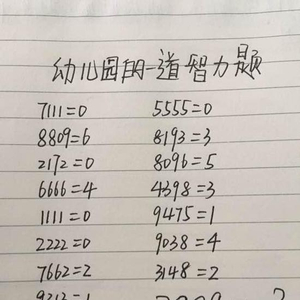 幼儿园的一道智力题
7111=0 5555=0
8809=6 8193=3
2172=0 8096=5
6666=4 4398=3
1111=0 9475=1
2222=0 9038=4
7662=2 3148=2